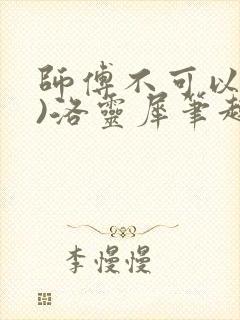 師傅不可以
)洛靈犀筆趣
李慢慢